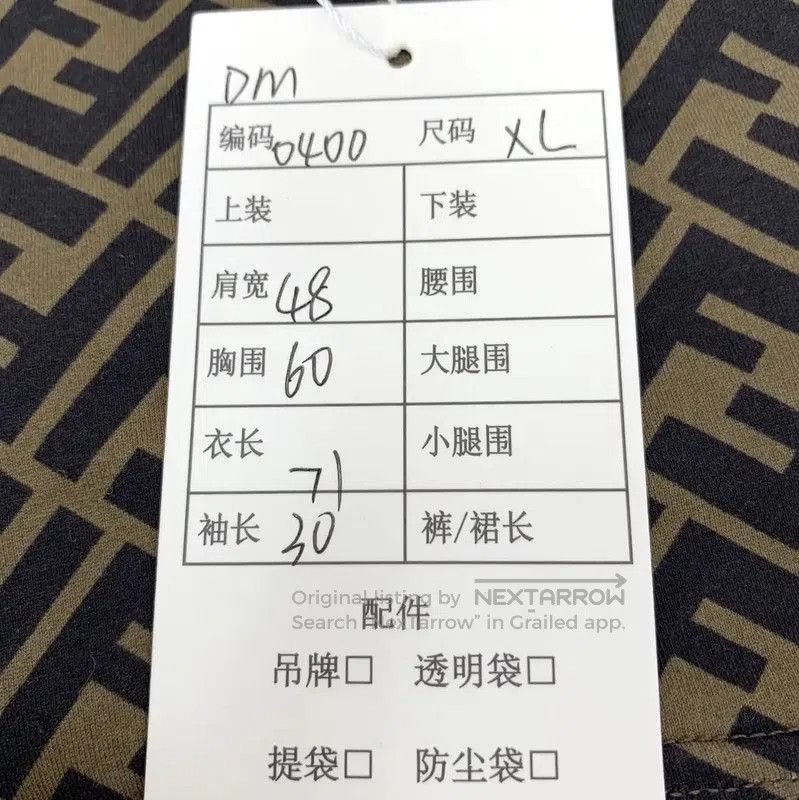 DM
编码 0400 尺码 XL
上装 下装
肩宽 48 腰围
胸围 60 大腿围
衣长 71 小腿围
袖长 30 裤/裙长
Original listing by NEXTARROW
配件
Search "NexTarrow" in Grailed app.
吊牌□ 透明袋□
提袋□ 防尘袋□